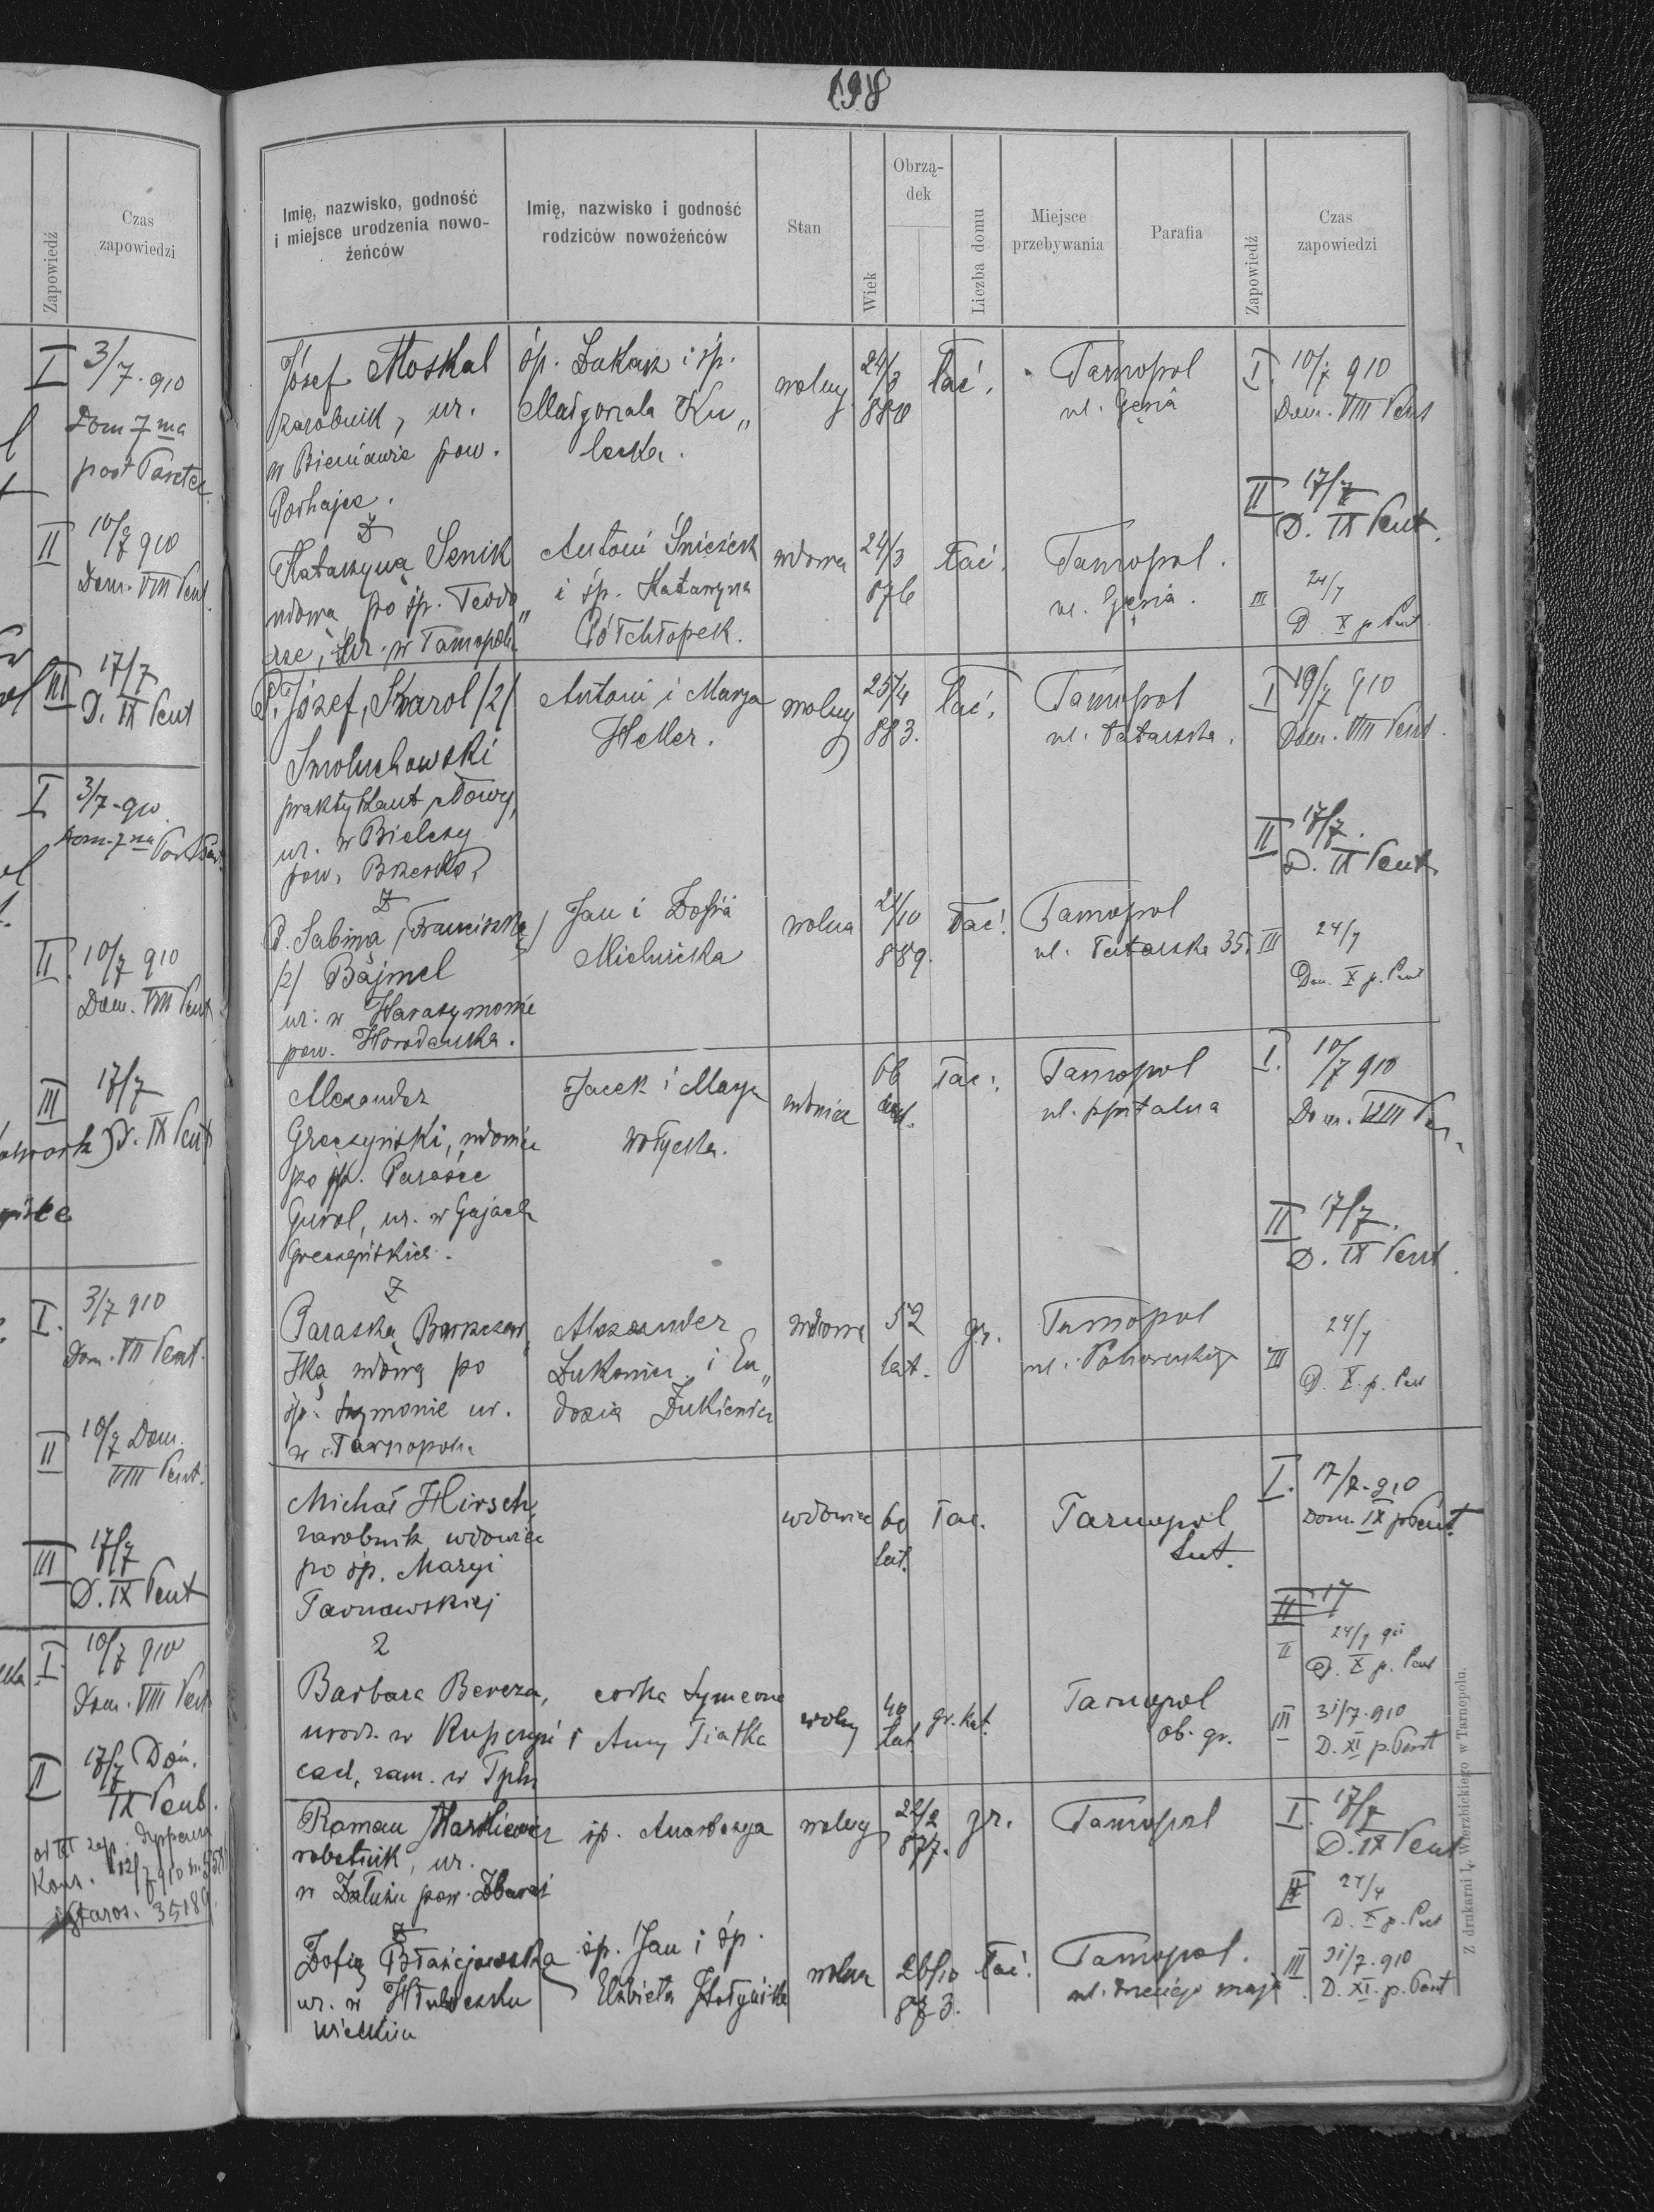 198
Zapowiedź
Czas
zapowiedzi
I 3/7. 910
Dom 7 ma
post
II 10/7 910
Dom. VIII Pent.
III 17/7
D. IX Pent
I 3/7 - 910
Dom. 7 ma
II. 10/7 910
Dom. VIII Pent
III 17/7
D. IX Pent
I. 3/7 910
Dom. VII Pent.
II 10/7 Dom.
VIII Pent.
III 17/7
D. IX Pent
I. 10/7 910
Dom. VIII Pent
II 17/7 Dom.
IX Pent.
Kons. 12/7 910
Staros. 35189
Imię, nazwisko, godność
i miejsce urodzenia nowo-
żeńców
Imię, nazwisko i godność
rodziców nowożeńców
Stan
Wiek
Obrzą-
dek
Liczba domu
Miejsce
przebywania
Parafia
Zapowiedź
Czas
zapowiedzi
Józef Moskal
zarobnik, ur.
w Bieniawie pow.
Podhajce.
śp. Łukasz i śp.
Małgorzata Ku„
leska.
wolny
24/3
880
łać.
Tarnopol
ul. Gęsia
I. 10/7 910
Dom. VIII Pent
II 17/7
D. IX Pent.
z
Katarzyną Senik
wdową po śp. Teodo„
rze, ur. w Tarnopolu
Antoni Śnieżek
i śp. Katarzyna
Półchłopek.
wdowa
24/3
876
łać.
Tarnopol.
ul. Gęsia.
III 24/7
D. X p. Pent.
P. Józef, Karol /2/
Smoluchowski
praktykant
ur. w Bielczy
pow. Brzesko,
Antoni i Marya
Heller.
wolny
25/4
883.
łać.
Tarnopol
ul. Tatarska.
I 10/7 910
Dom. VIII Pent.
II 17/7.
D. IX Pent
z
p. Sabiną, Franciszką
/2/ Bajmel
ur. w Harasymowie
pow. Horodenka.
Jan i Zofia
wolna
21/10
889.
łać.
Tarnopol
ul. Tatarska 35.
III 24/7
Dom. X p. Pent
Alexander
Greczyński, wdowiec
po śp. Parasce
Gurol, ur. w Gajach
Greczyńskich.
Jacek i Marya
Wołycka.
wdowiec
66
lat.
łać.
Tarnopol
ul. szpitalna
I. 10/7 910
Dom. VIII Pen.
II 17/7.
D. IX Pent.
z
Paraską
ską wdową po
śp. Szymonie ur.
w Tarnopolu
Alexander
i Eu„
dozia Żukiewicz
wdowa
52
lat.
gr.
Tarnopol
ul.
III 24/7
D. X. p. Pent
Michał Hirsch,
zarobnik wdowiec
po śp. Maryi
Tarnawskiej
wdowiec
60
lat.
łać.
Tarnopol
łat.
I. 17/7. 910
Dom. IX p Pent.
II 17
II 24/7 910
D. X p. Pent
z
Barbara Bereza,
urodz. w
zam. w Tplu
córka Symeona
i Anny Tiatka
wolny
40
lat.
gr. kat.
Tarnopol
ob. gr.
III 31/7. 910
D. XI p. Pent
Roman Markiewicz
robotnik, ur.
w Załużu pow. Zbaraż
śp. Anastazya
wolny
22/2
877.
gr.
Tarnopol
I. 17/7
D. IX Pent
II 24/7
D. X p. Pent
z
Zofią
ur. w Hłuboczku
Wielkim
śp. Jan i śp.
Elżbieta
wolna
26/10
873.
łać.
Tarnopol.
ul. trzeciego maja
III 31/7. 910
D. XI. p. Pent
Z drukarni L. Wierzbickiego w Tarnopolu.